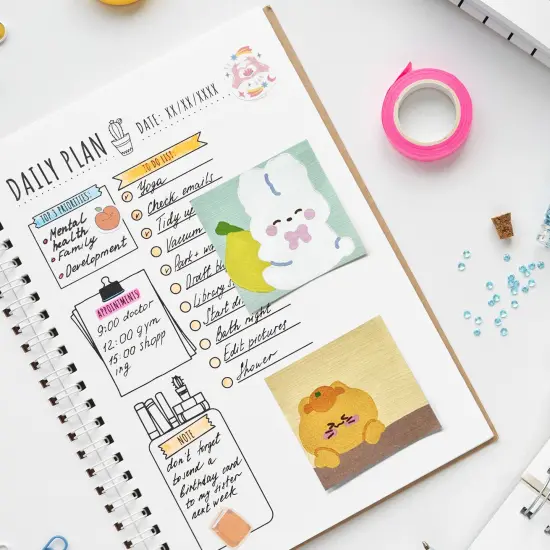 DAILY PLAN
DATE: XX/XX/XXXX
TOP 3 PRIORITIES:
Mental
health
Family
Development
TO DO LIST:
Yoga
Check emails
Tidy up
Vacuum
Park +
Draft
Library
Start
Bath night
Edit pictures
Shower
APPOINTMENTS
9:00 doctor
12:00 gym
15:00 shopp
ing
NOTE
don't forget
to send a
Birthday card
to my sister
next week